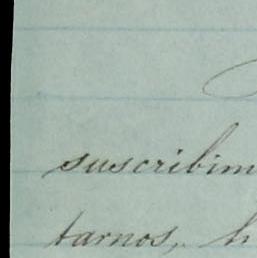 suscribim
tarnos, h